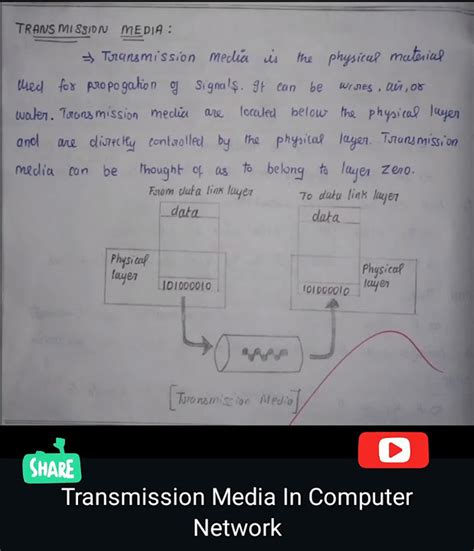 TRANSMISSION MEDIA :
⇒ Transmission media is the physical material
used for propogation of signals. It can be wires, air, or
water. Transmission media are located below the physical layer
and are directly controlled by the physical layer. Transmission
media can be thought of as to belong to layer zero.
From data link layer
To data link layer
data
data
Physical
layer
Physical
layer
101000010
101000010
[Transmission Media]
SHARE
Transmission Media In Computer
Network